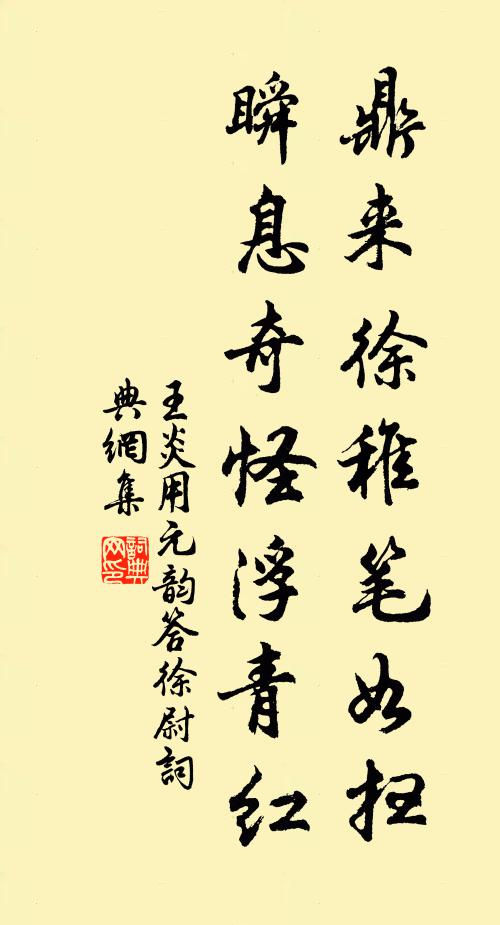 鼎来徐稚笔如抂
瞬息奇怪浮青红
王炎用元韵答徐尉詞
典網集
詞典網印